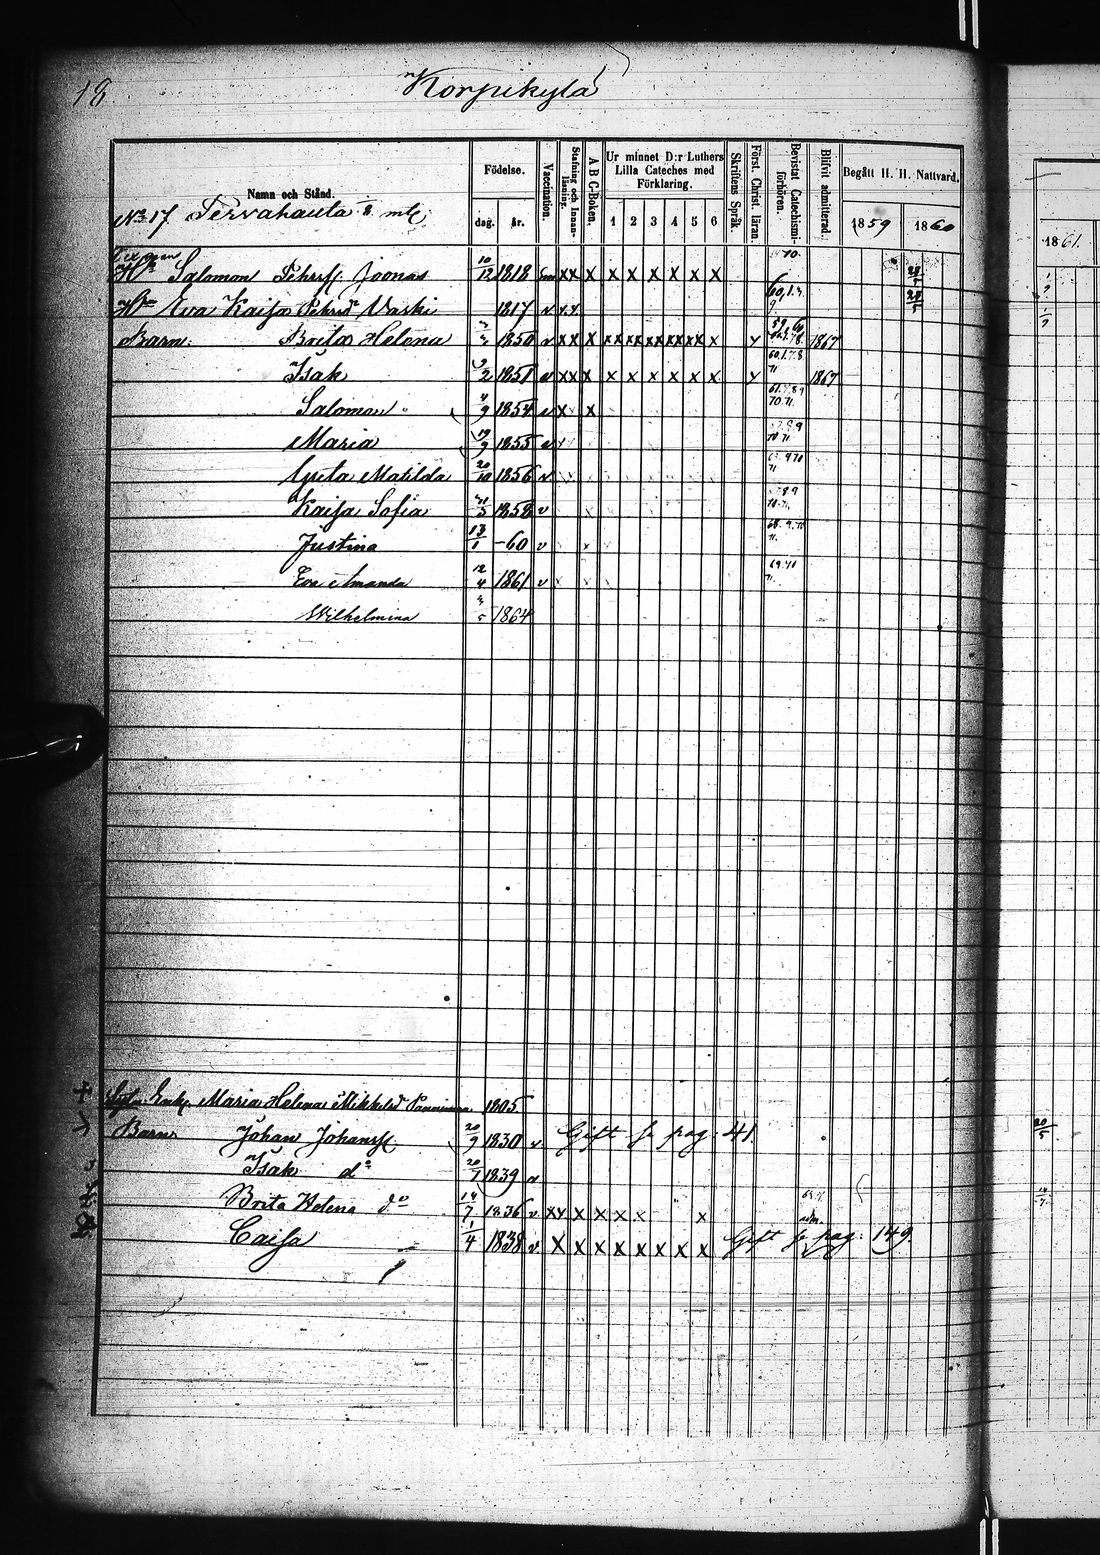 18 Korpikylä
Namn och Stånd. Födelse. dag. år. Vaccination. Stafning och Innanläsning. A B C-Boken. Ur minnet D:r Luthers Lilla Cateches med Förklaring. 1 2 3 4 5 6 Skriftens Språk. Förest. Christ. läran. Bevistat Catechismi-förhören. Blifvit admitterad. Begått H. H. Nattvard. 1859 1860 1861
No 17 Tervahauta
Salomon Pehrss. Joonas 10/12 1818 xx x x x x x x x
Eva Kaisa Pehrsd Vaski 1817 v
Barn: Brita Helena 1850 v xx x xx xx xx xx xx x 1867
Isak 1851 v xx x x x x x x x 1867
Salomon 9 1854 v x x
Maria 19/9 1855
Greta Matilda 20/10 1856 v
Kaisa Sofia 1858 v
Justina 13/1 -60 v
Eva Amanda 12/4 1861 v
Wilhelmina 1864
Enk. Maria Helena Mikkelsd 1805
Barn Johan Johanss. 20/9 1830 v Gift se pag. 41
Isak do 20/7 1839 v
Brita Helena do 14/7 1836 v xx x x x x x
Caisa 1/4 1838 v x x x x x x x x Gift se pag. 149